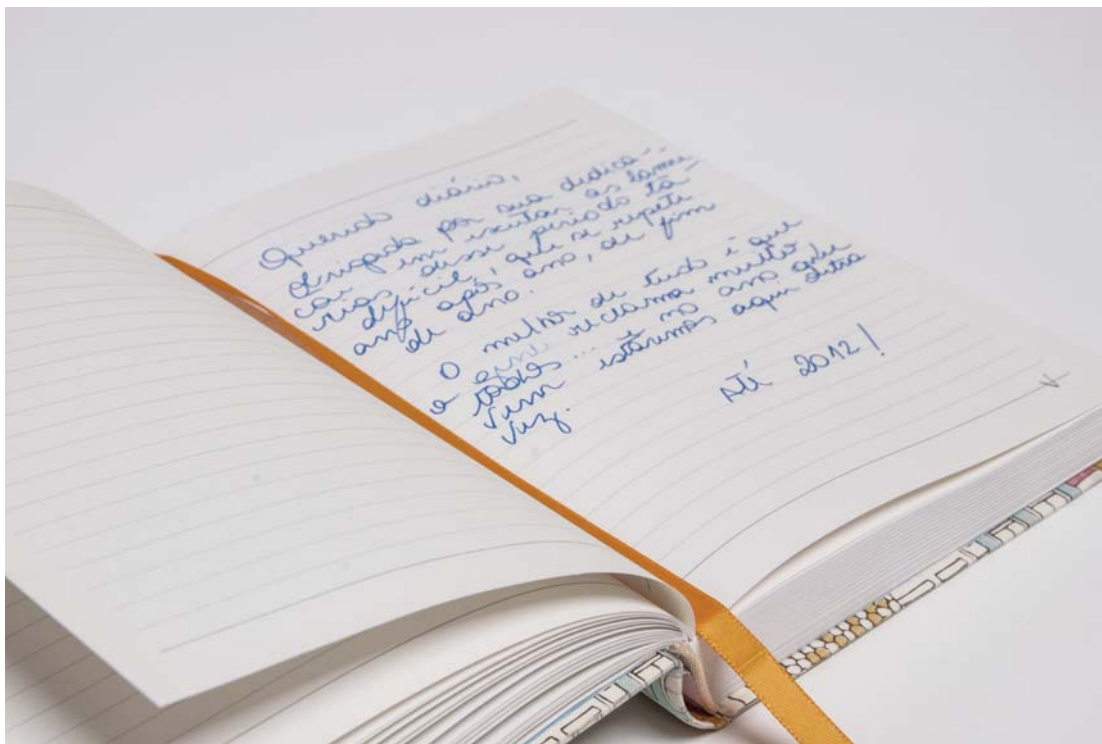 Querido diário,
Obrigada por sua dedica-
ção em escutar as lamú-
rias desse período tão
difícil, que se repete
ano após ano, de fim
de ano.
O melhor de tudo é que
reclama muito
e todos... no ano que
vem estaremos aqui outra
vez.
Até 2012!